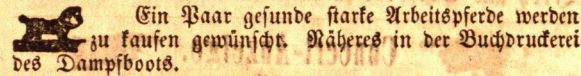 Ein Paar gesunde starke Arbeitspferde werden
zu kaufen gewünscht. Näheres in der Buchdruckerei
des Dampfboots.